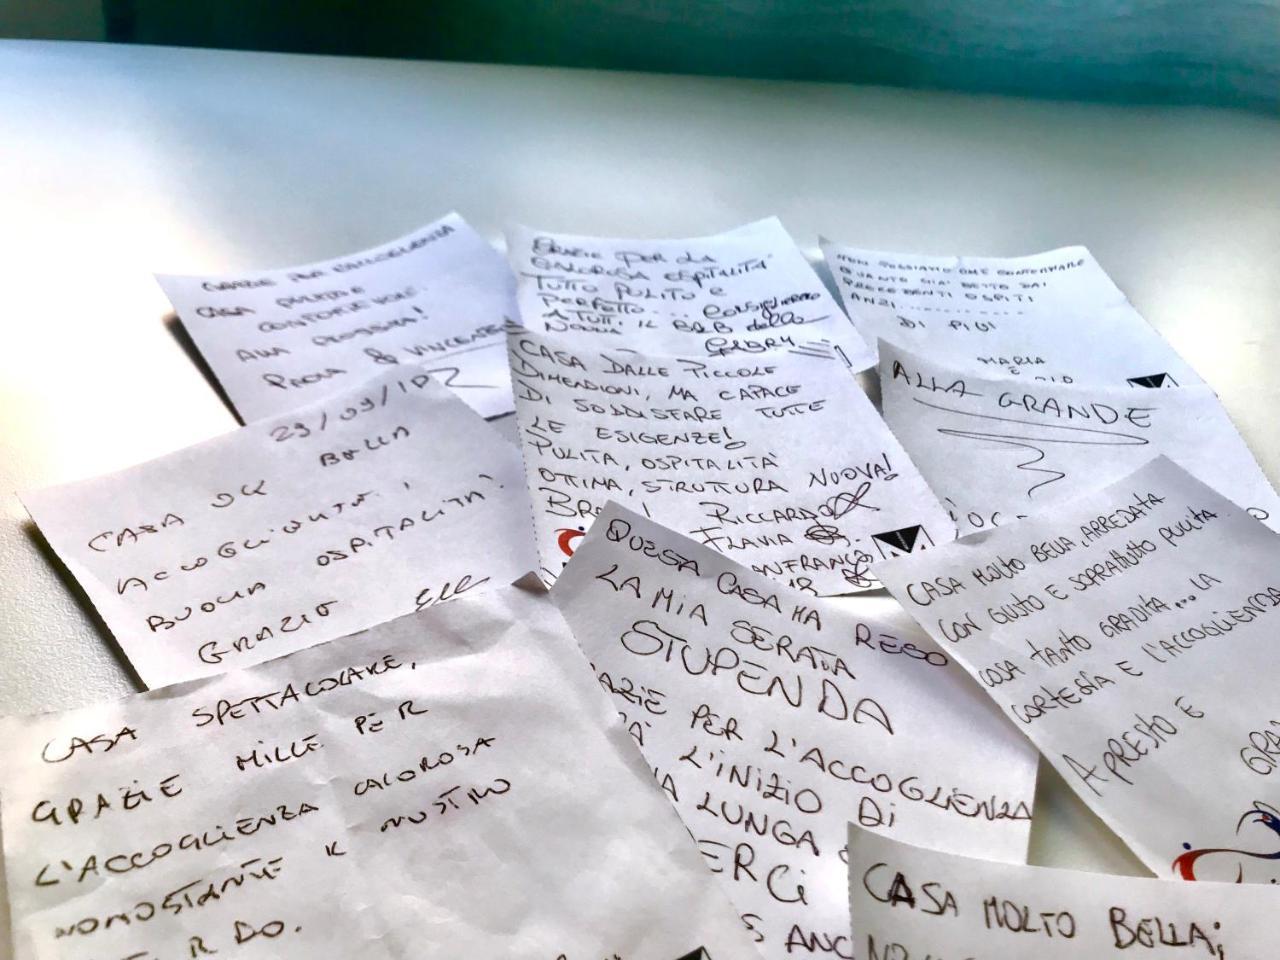 GRAZIE PER L'ACCOGLIENZA
CASA PULITA E
CONFORTEVOLE.
ALLA PROSSIMA!
PAOLA & VINCENZO
GRAZIE PER LA
CALOROSA OSPITALITÀ
TUTTO PULITO E
PERFETTO... CONSIGLIEREMO
A TUTTI IL B&B della
NONNA
GABRY
NON POSSIAMO CHE CONFERMARE
QUANTO GIÀ DETTO DAI
PRECEDENTI OSPITI
ANZI............
DI PIÙ!
MARIA
E
ALLA GRANDE
29/09/
CASA OK BELLA
ACCOGLIENZA,
BUONA OSPITALITÀ
GRAZIE
CASA DALLE PICCOLE
DIMENSIONI, MA CAPACE
DI SODDISFARE TUTTE
LE ESIGENZE!
PULITA, OSPITALITÀ
OTTIMA, STRUTTURA NUOVA!
RICCARDO
FLAVIA
ANFRANCO
CASA MOLTO BELLA, ARREDATA
CON GUSTO E SOPRATTUTTO PULITA.
COSA TANTO GRADITA... LA
CORTESIA E L'ACCOGLIENZA
A PRESTO E
GRA
QUESTA CASA HA RESO
LA MIA SERATA
STUPENDA
AZIE PER L'ACCOGLIENZA
L'INIZIO DI
A LUNGA
ERCI
S ANC
CASA SPETTACOLARE,
GRAZIE MILLE PER
L'ACCOGLIENZA CALOROSA
NONOSTANTE IL NOSTRO
R DO.
CASA MOLTO BELLA;